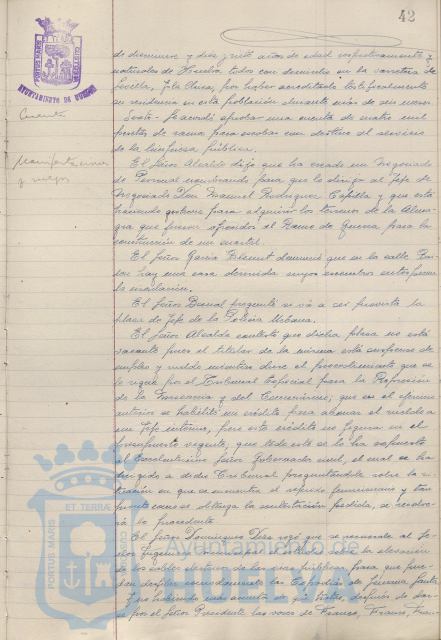 42
PORTUS MARIS ET TERRÆ CUSTODIA
AYUNTAMIENTO DE HUELVA
Cuenta
Manifestaciones
y ruegos
de diecinueve y diez y siete años de edad respectivamente y
naturales de Huelva, todos con domicilio en la carretera de
Sevilla, por haber acreditado testificalmente
su residencia en esta población durante más de seis meses.
Sexto. Se acordó aprobar una cuenta de
de rama para escobas con destino al servicio
de la limpieza pública.
El Señor Alcalde dijo que ha creado un Negociado
de Personal nombrando para que lo dirija al Jefe de
Negociado Don Manuel Rodríguez Capilla y que está
haciendo gestiones para adquirir los terrenos de la
que fueron ofrecidos al Ramo de Guerra para la
construcción de un cuartel.
El Señor García denunció que en la calle
hay una casa derruida cuyos escombros entorpecen
la circulación.
El Señor Bernal pregunta si va a ser provista la
plaza de Jefe de la Policía Urbana.
El Señor Alcalde contestó que dicha plaza no está
vacante pues el titular de la misma está suspenso de
empleo y sueldo mientras dure el procedimiento que se
le sigue por el Tribunal Especial para la Represión
de la Masonería y del Comunismo; que en el
anterior se habilitó un crédito para abonar el sueldo a
un Jefe interino, pero este crédito no figura en el
Presupuesto vigente; que todo esto se lo ha expuesto
al Excelentísimo Señor Gobernador civil, el cual se ha
dirigido a dicho Tribunal preguntándole sobre la si-
tuación en que se encuentra el referido funcionario y tan
pronto como se obtenga la contestación pedida, se resolve-
rá lo procedente.
El Señor Domínguez rogó que se recuerde al Se-
ñor Ingeniero la elevación
de los cables eléctricos de las vías públicas para que pue-
dan desfilar cómodamente las Cofradías de Semana Santa.
Y no habiendo más asuntos que tratar, después de dar-
se por el Señor Presidente las voces de Franco, Franco, Fran-
PORTUS MARIS ET TERRÆ CUSTODIA
Ayuntamiento de
HUELVA